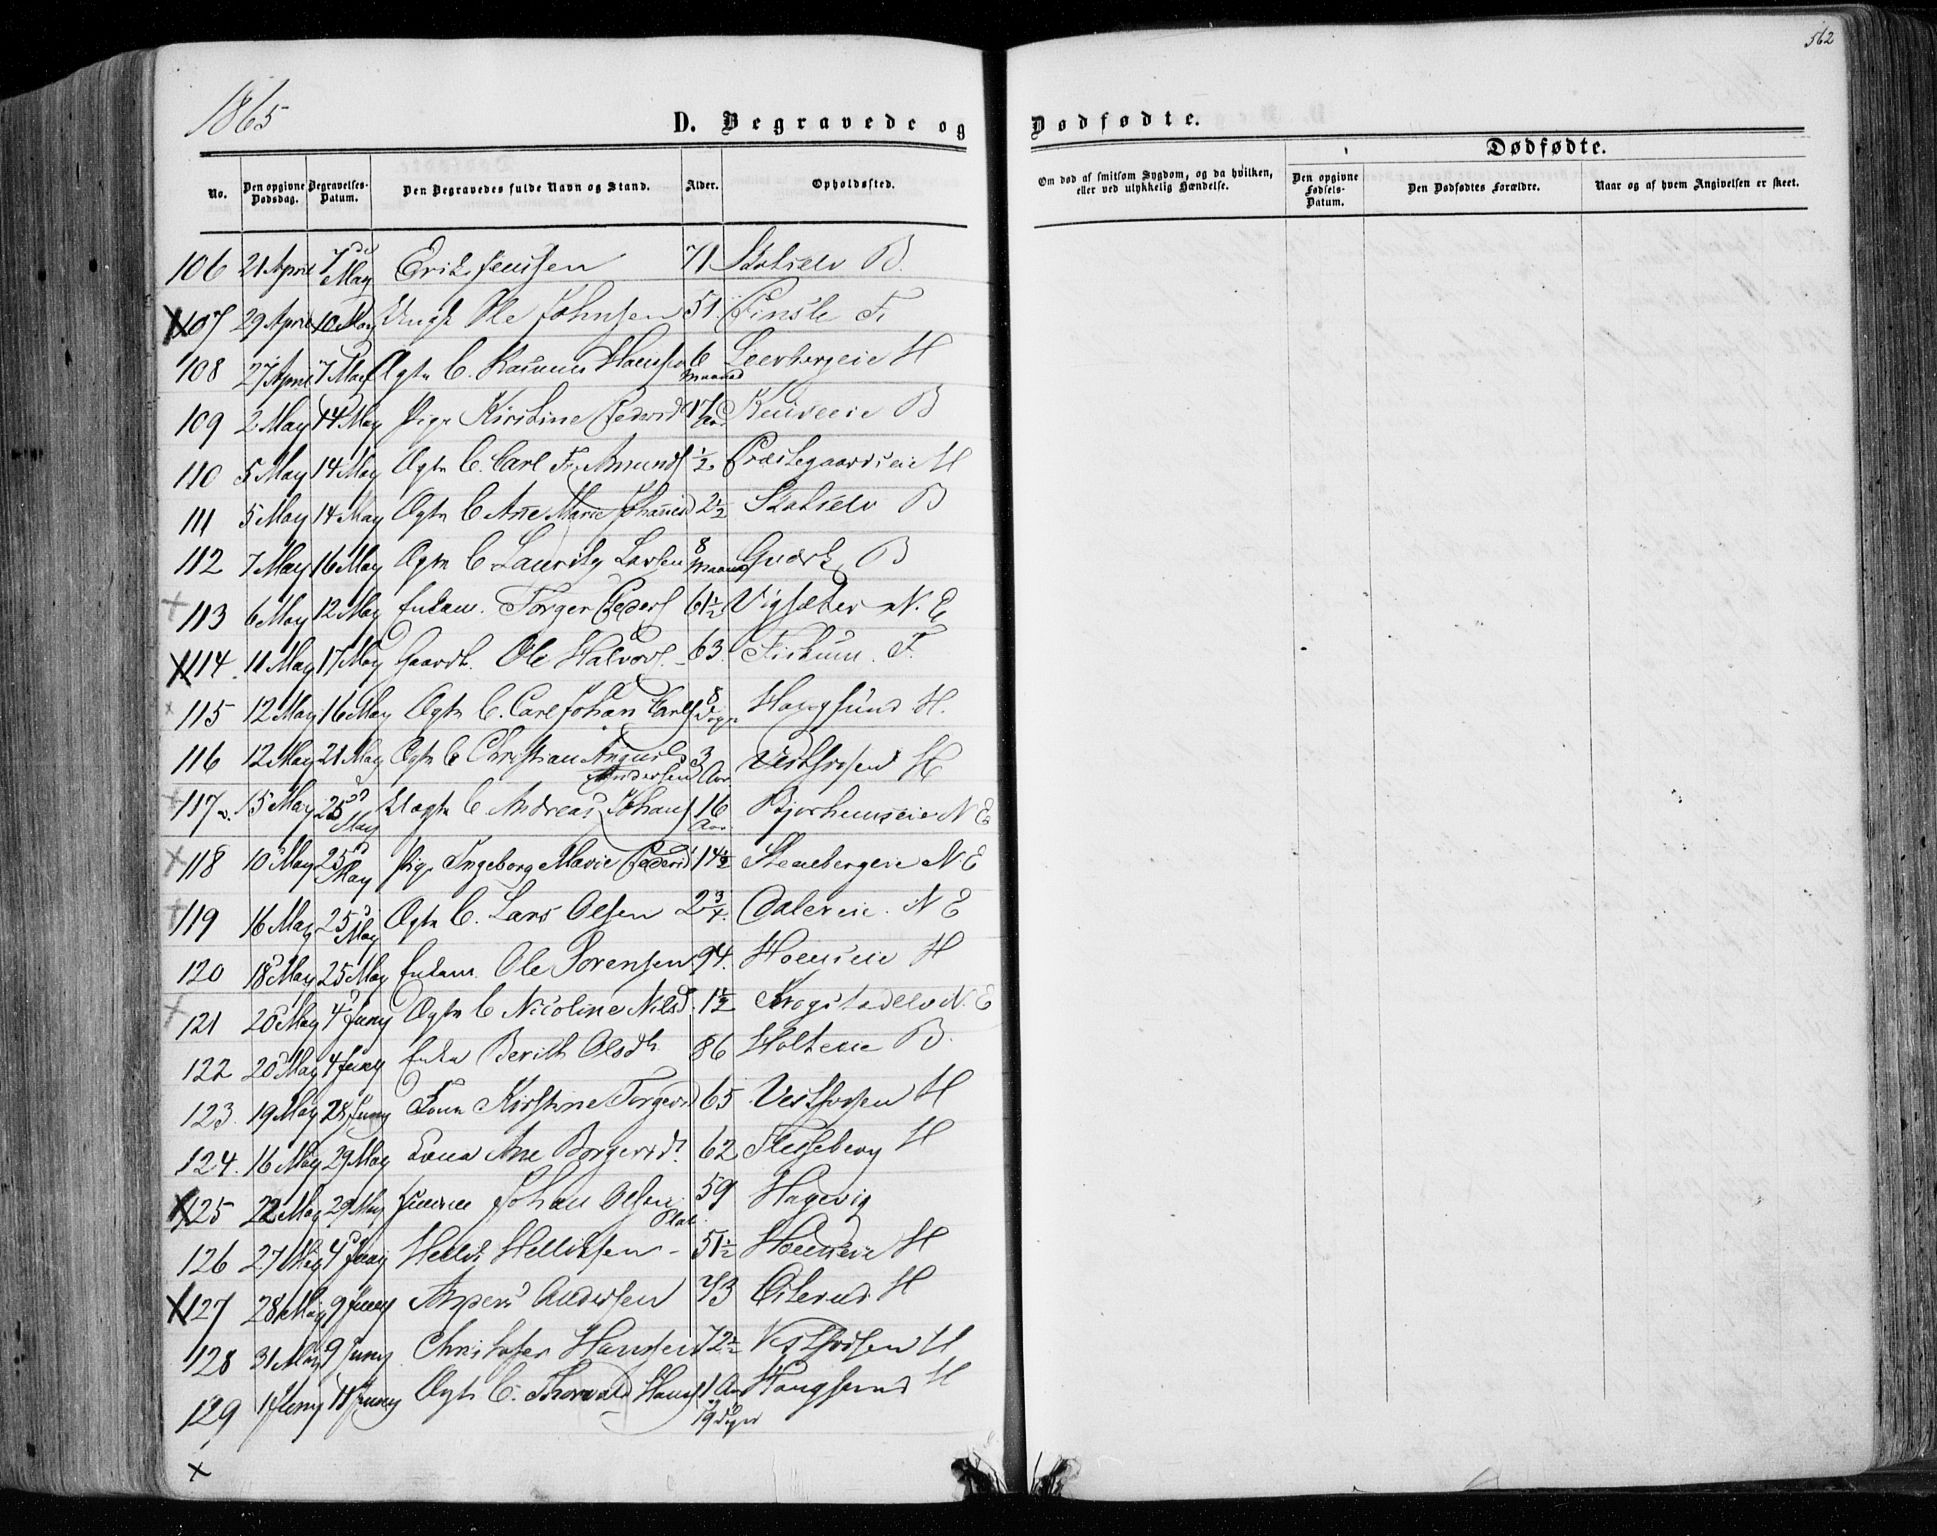 562
1865
D. Begravede og Dødfødte.
No. Den opgivne Dødsdag. Begravelses-Datum. Den Begravedes fulde Navn og Stand. Alder. Opholdssted.
Om død af smitsom Sygdom, og da hvilken, eller ved ulykkelig Hændelse.
Dødfødte.
Den opgivne Fødsels-Datum. Den Dødfødtes Forældre. Naar og af hvem Angivelsen er skeet.
106 21 April 7 May Erik Jensen 71 Skotselv B.
107 29 April 10 May Ungk Ole Johnsen 51 F.
108 27 April 7 May Ægte B. Rasmus Hansen 6 Maaned H
109 2 May 14 May Pige Kirstine Pedersd 17 Aar B
110 5 May 14 May Ægte B. Carl Fr. Amunds ½ Præstegaardseie H
111 5 May 14 May Ægte B Ane Marie Johansd 2½ Skotselv B
112 7 May 16 May Ægte B. Lauritz Larsen 8 Maaned B
113 6 May 12 May Enkem. Torger Peders 61½ Vigsæter N. E
114. 11 May 17 May Gaardb. Ole Halvors. 63. Fiskum. F.
115 12 May 16 May Ægte B. Carl Johan Carls 8 Dage Hougsund H.
116 12 May 21 May Ægte B Christian August Andersen 3 Aar Vestfossen H
117 15 May 25 May Uægte B Andreas Johans 16 Aar N E
118 10 May 25 May Pige Ingeborg Marie Pedersd 14½ Stenbergeie N E
119 16 May 25 May Ægte B. Lars Olsen 2¾. Dalereie. N E
120 18 May 25 May Enkem. Ole Sorensen 94. Hoenseie H
121 20 May 4 Juny Ægte B Nicoline Nilsd. 1½ Krogstadelv N. E
122 20 May 4 Juny Enke Berith Olsdt. 86 Holteeie B.
123. 19 May 28 Juny Kone Kirstine Torgersd 65 Vestfossen H
124. 16 May 29 May Kone Ane Borgersdt. 62 Flesseberg H
125 22 May 29 May Johan Olsen 59 Hagevig
126 27 May 4 Juny Hellik Helliksen 51½ Hoenseie H
127 28 May 9 Juny Andersen 43 H
128 31 May 9 Juny Christofer Hansen 72½ Vestfossen H
129 1 Juny 11 Juny Ægte B. Thorvald Hans 1 Aar 19 Dage Hougsund H
x